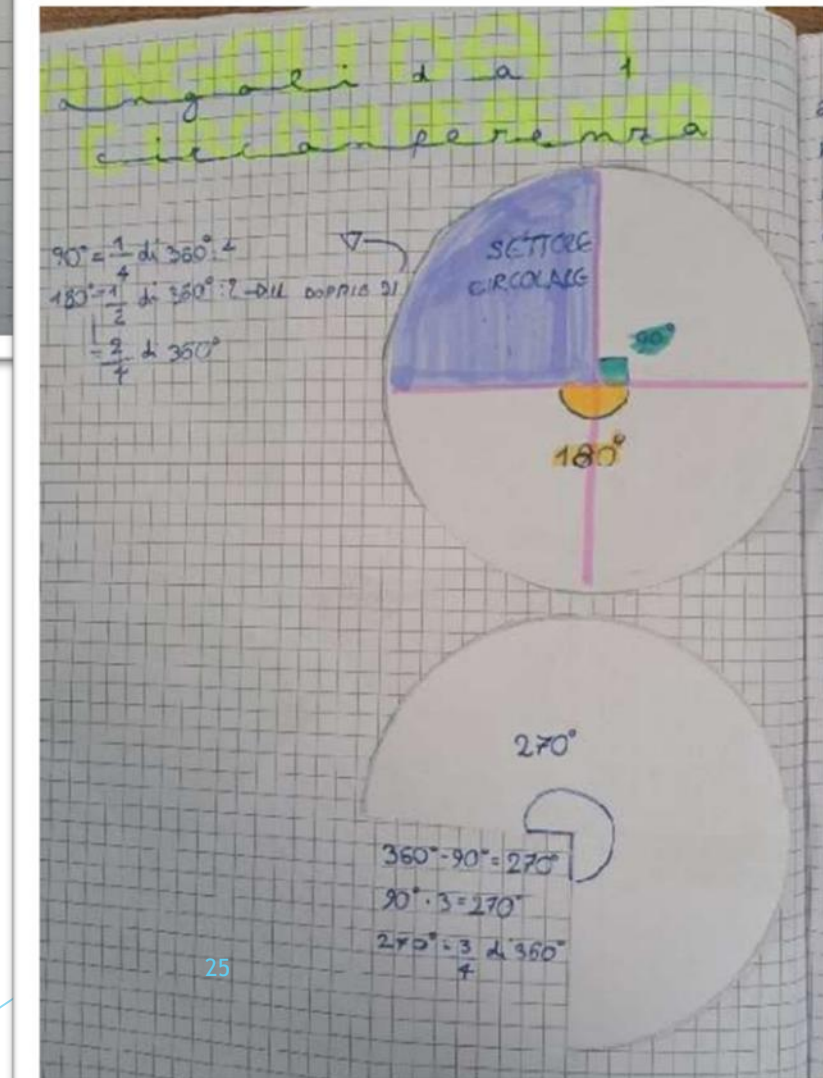 ANGOLI DA 1
angoli da 1
circonferenza
90° = 1/4 di 360° : 4
180° = 1/2 di 360° : 2 → IL DOPPIO DI
= 2/4 di 360°
SETTORE
CIRCOLARE
90°
180°
270°
360° - 90° = 270°
90° · 3 = 270°
270° = 3/4 di 360°
25